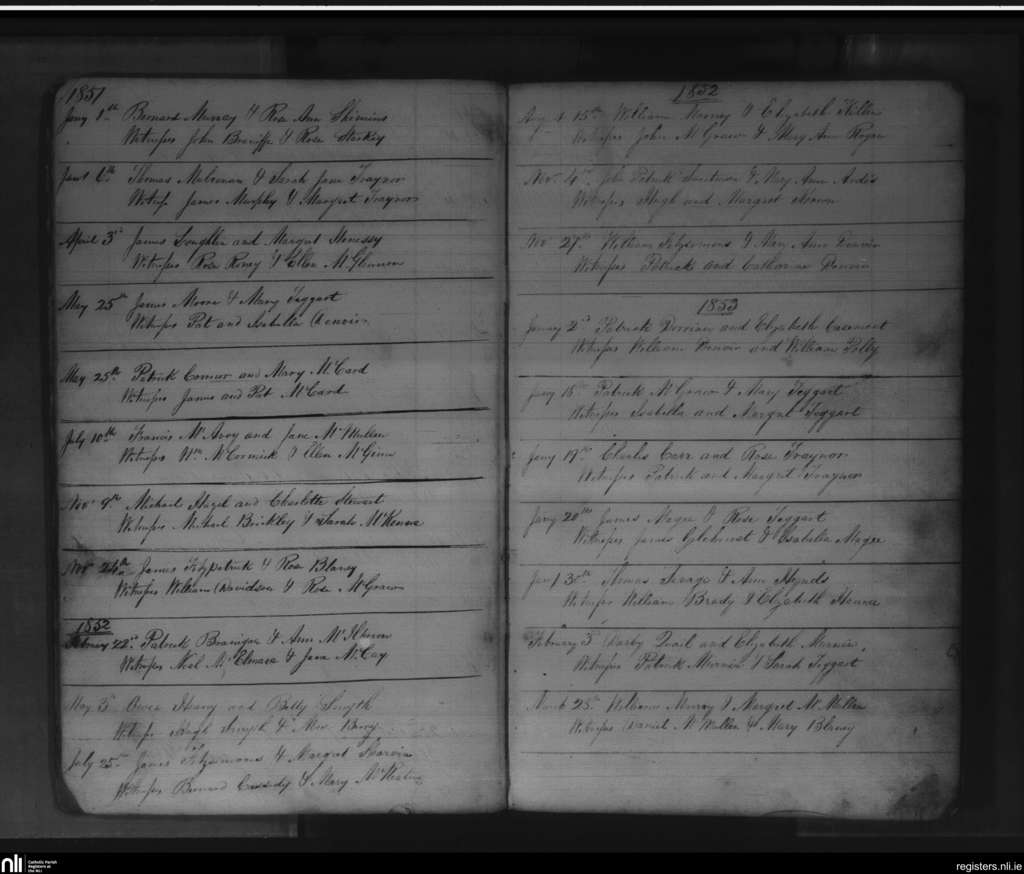 1851
Jany 1st Bernard Murray & Rose Ann Skimins
Witnesses John Braniffe & Rose Starkey
Jany 6th Thomas Mulvenan & Sarah Jane Traynor
Witness James Murphy & Margret Traynor
April 3rd James Loughlin and Margret Henessy
Witnesses Rose Roney & Ellen McGlennon
May 25th James Moore & Mary Teggart
Witnesses Pat and Isabella Denvir
May 25th Patrick Connor and Mary McCard
Witnesses James and Pat McCard
July 10th Francis McAvoy and Jane McMullen
Witnesses Wm McCormick & Ellen McGinn
Nov 9th Michael Hazel and Charlotte Stewart
Witnesses Michael Brickley & Sarah McKenna
Nov 24th James Fitzpatrick & Rose Blaney
Witnesses William Davidson & Rose McGrawn
1852
Februry 22nd Patrick Branigan & Ann
Witnesses Neil & Jane McCay
May 3rd Owen Heany and Betty Smyth
Witness Hugh Smyth &
July 25th James Fitzsimons & Margret
Witnesses Bernard Cassidy & Mary
1852
15th William & Elizabeth Killen
Witnesses John McGrawn & Mary Ann Rogan
Nov 4th John Patrick & Mary Ann
Witnesses Hugh and Margret
Nov 27th William Fitzsimons & Mary Ann Denvir
Witnesses Patrick and Catherine Denvir
1853
January 2nd Patrick Dorrian and Elizabeth Casement
Witnesses William Denvir and William Polly
Jany 15th Patrick McGrawn & Mary Teggart
Witnesses Isabella and Margret Teggart
Jany 19th Charles Carr and Rose Traynor
Witnesses Patrick and Margret Traynor
Jany 20th James Magee & Rose Teggart
Witnesses James Gilchrist & Isabella Magee
Jany 30th Thomas Savage & Ann Hynds
Witnesses William Brady & Elizabeth
February 3rd Darby Quail and Elizabeth
Witnesses Patrick & Sarah Teggart
March 25th William Murray & Margret McMullen
Witnesses Daniel McMullen & Mary Blaney
nli
Catholic Parish
Registers at
the NLI
registers.nli.ie